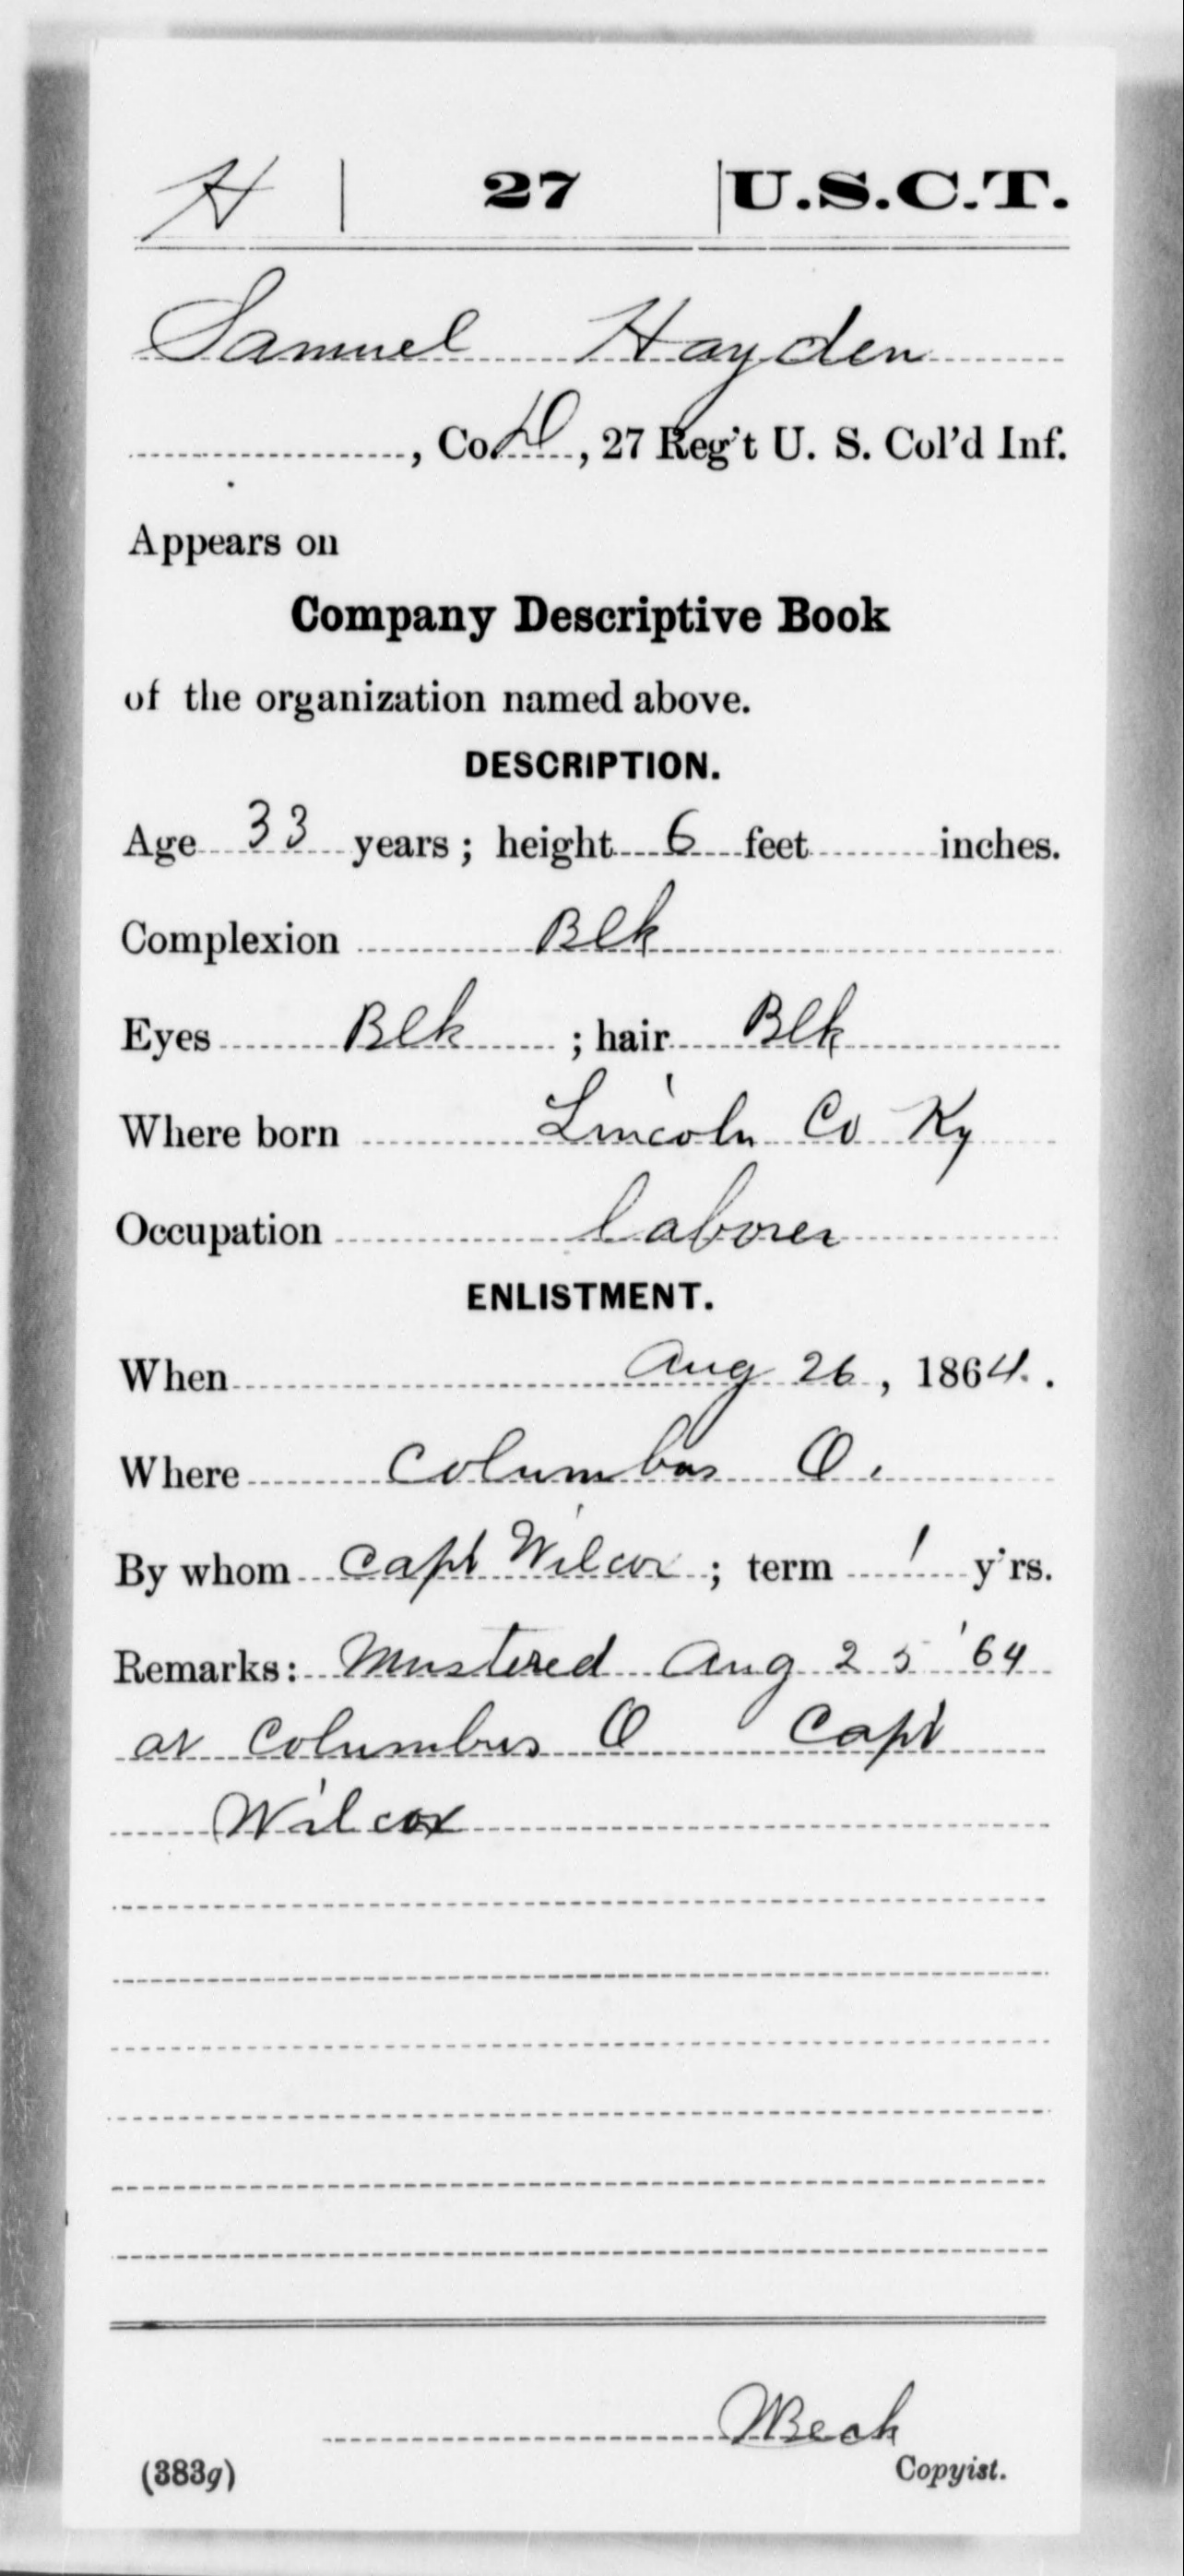 H | 27 | U.S.C.T.
Samuel Hayden
, Co. D, 27 Reg't U. S. Col'd Inf.
Appears on
Company Descriptive Book
of the organization named above.
DESCRIPTION.
Age 33 years; height 6 feet inches.
Complexion Blk
Eyes Blk ; hair Blk
Where born Lincoln Co Ky
Occupation laborer
ENLISTMENT.
When Aug 26, 1864.
Where Columbus O.
By whom Capt Wilcox; term 1 y'rs.
Remarks: Mustered Aug 25 '64
at Columbus O Capt
Wilcox
Beck
(383g) Copyist.